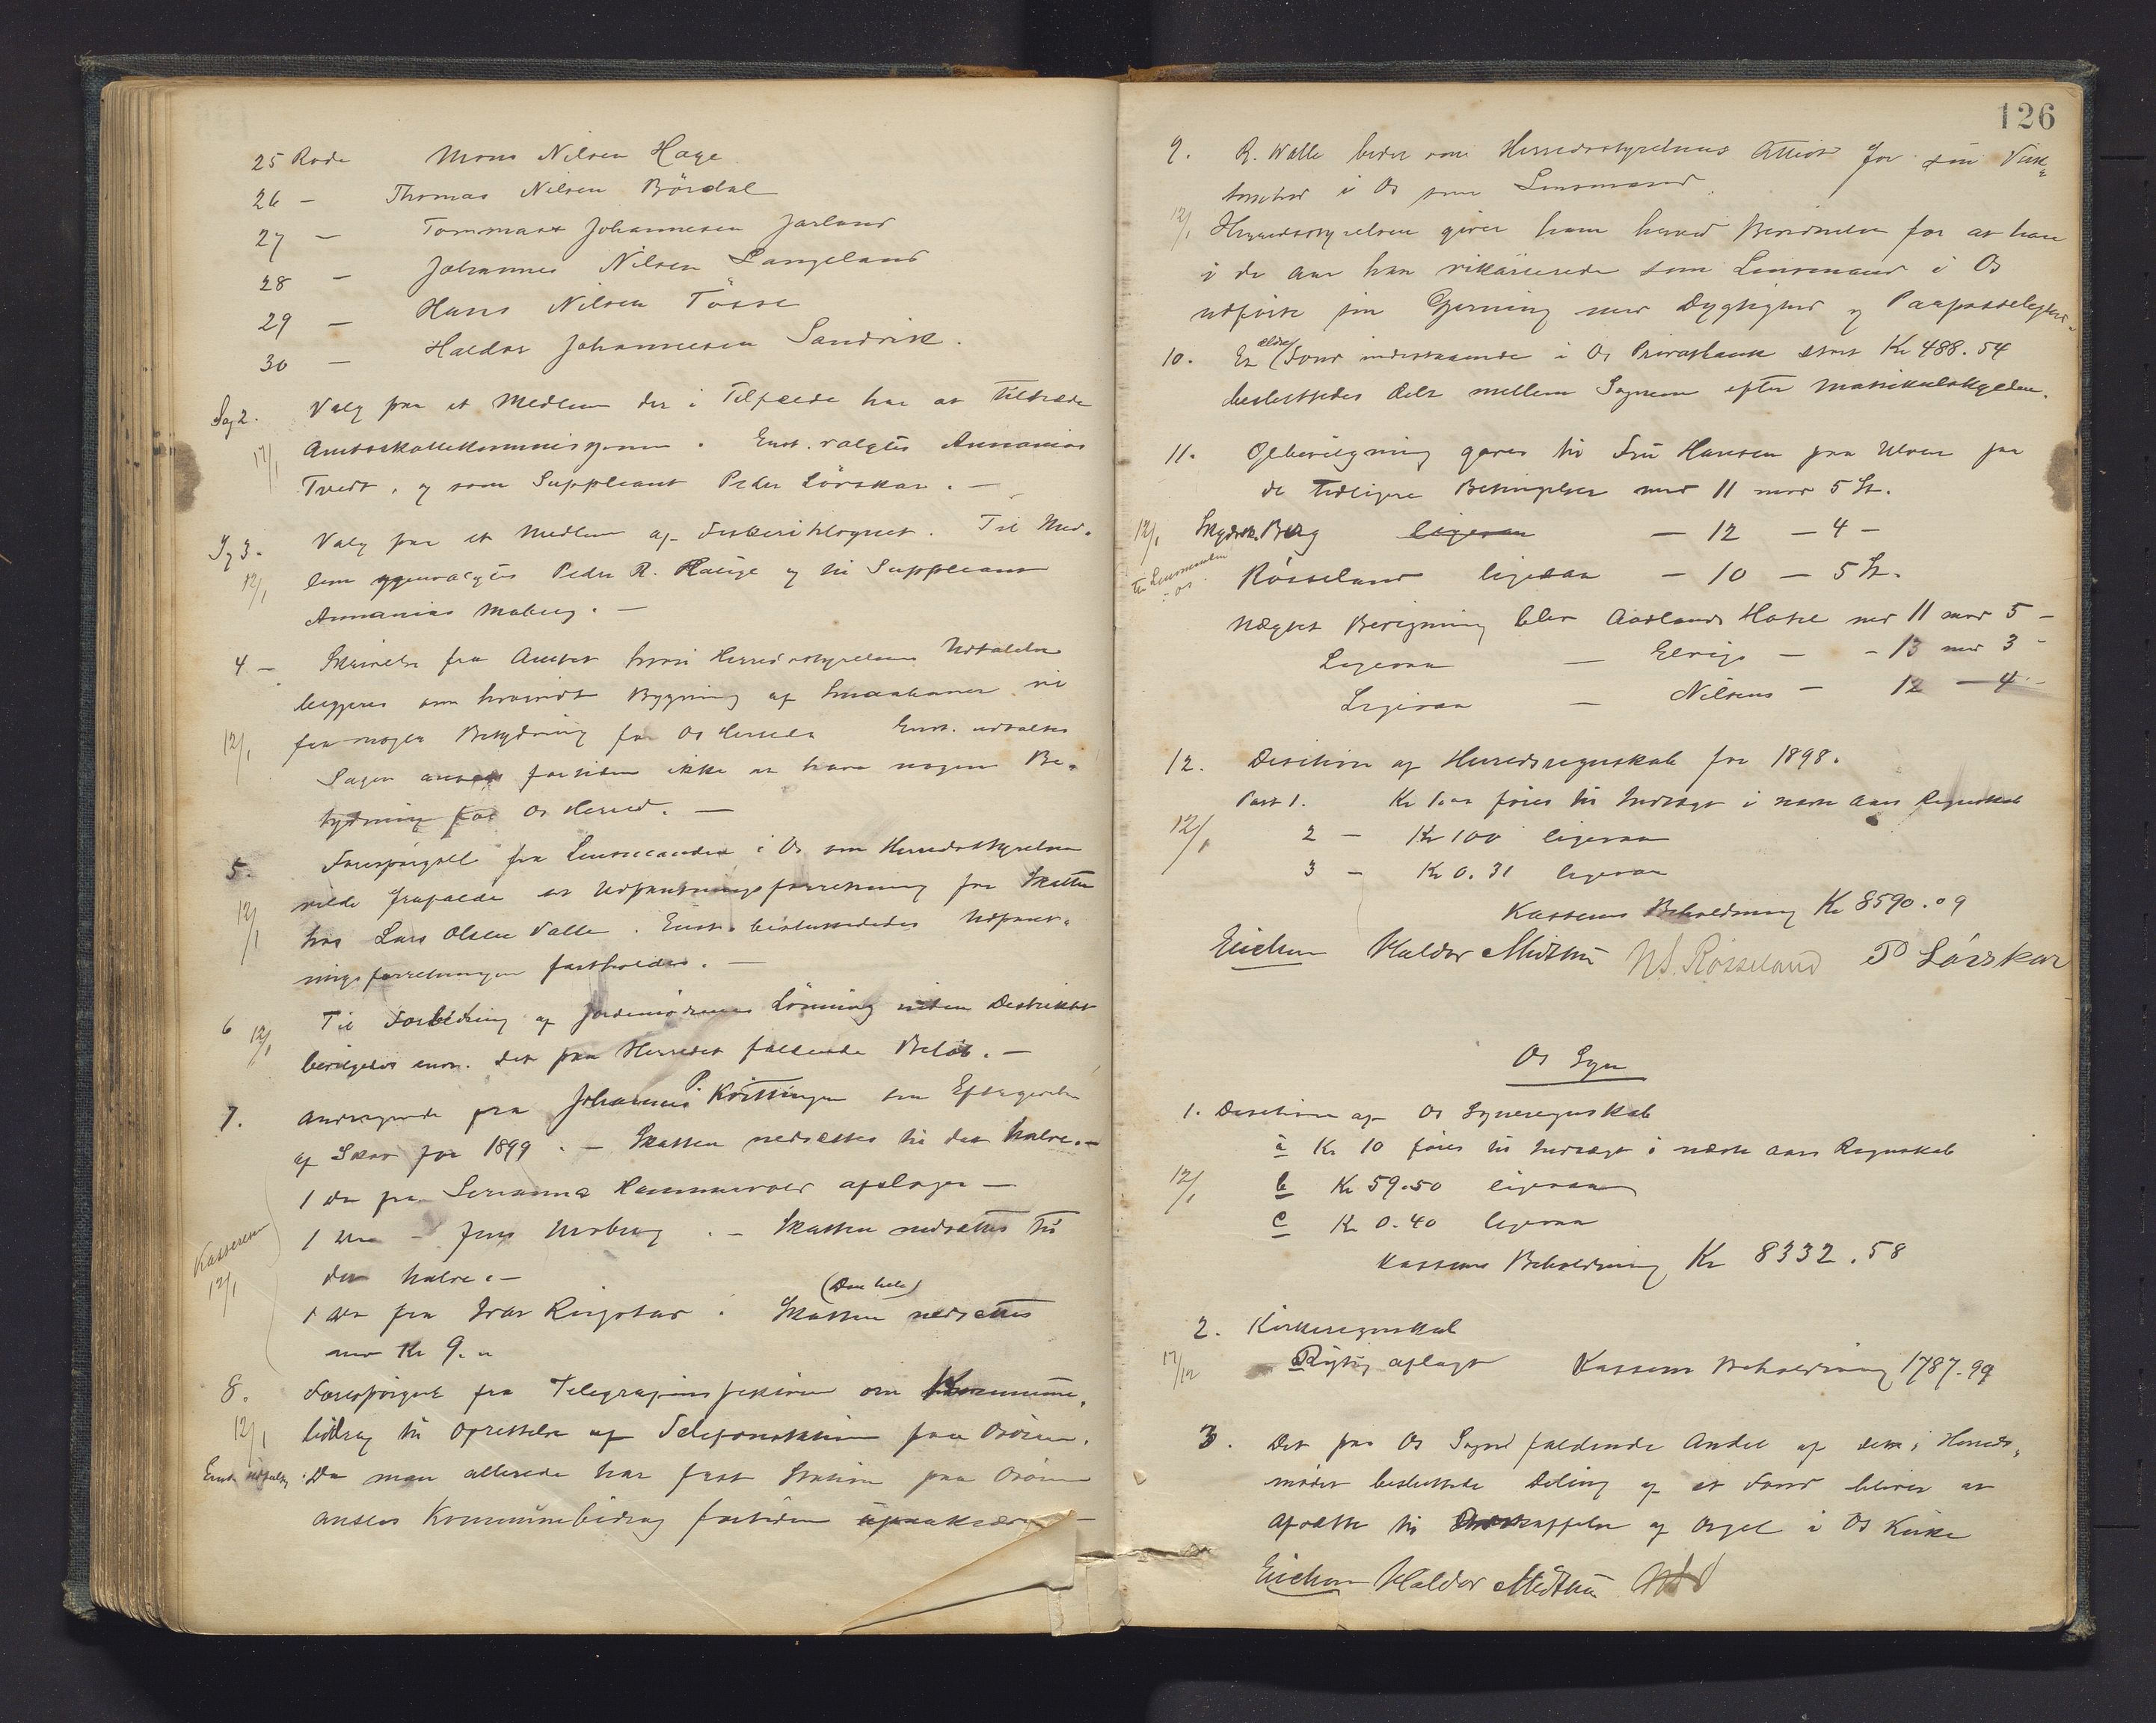 25 Rode Mons Nilsen Hage
26 — Thomas Nilsen Bördal
27 — Tommas Johannesen Jarland
28 — Johannes Nilsen Langeland
29 — Hans Nilsen Tösse
30 — Haldor Johannesen Sandvik.
Sag 2. Valg paa et Medlem der i Tilfælde har at tiltræde
12/1 Amtsskattekommissjonen. Enst. valgtes Annanias
Tvedt, og som Suppleant Peder Lörskar. —
Sg 3. Valg paa et Medlem af Til Med-
12/1 lem gjenvalgtes Peder R. Hauge og til Suppleant
Annanias Moberg. —
4 — Skrivelse fra Amtet hvori Herredsstyrelsens Udtalelse
begjæres om hvorvidt Bygning af Smaabaner vil
12/1 faa nogen Betydning for Os Herred. Enst. udtaltes
Sagen ansees fortiden ikke at have nogen Be-
tydning for Os Herred. —
5. Forespörgsel fra Lensmanden i Os om Herredsstyrelsen
vilde frafalde en Udpantningsforretning for Skatten
12/1 hos Lars Olsen Valle. Enst. besluttedes Udpant-
ningsforretningen fastholdes. —
6 12/1 Til Forbedring af Jordemödrenes Lönning inden Distriktet
bevilgedes enst. det paa Herredet faldende Belöb. —
7. Andragende fra Johannes P. Kösttingen om Eftergivelse
af Skat for 1899. — Skatten nedsættes til det halve. —
1 do fra Serianna Hammervold afslages —
1 do — Jens Moberg. — Skatten nedsættes til
Kassereren
12/1
det halve. —
(Den hele)
1 do fra Ivar Ringstad. Skatten nedsættes
med Kr 9. "
8. Forespörgsel fra Telegrafinspektören om Kommune-
12/1 bidrag til Oprettelse af Telefonstation paa Osören.
Enst. udtaltes: Da man allerede har fast Station paa Osören
ansees Kommunebidrag fortiden
126
9. R. Walle beder om Herredsstyrelsens Attest for sin Virk-
somhed i Os som Lensmand.
12/1 Herredsstyrelsen giver ham herved Bevidnelse for at han
i de Aar han vikarierede som Lensmand i Os
udförte sin Gjerning med Dygtighed og Paapasselighed.
10. Et ældre Fond indestaaende i Os Privatbank stort Kr 488.54
besluttedes delt mellem Sognene efter Matrikulskylden.
11. Ölbevilgning gaves til Fru Hansen paa Ulven paa
de tidligere Betingelser med 11 mod 5 St.
12/1 Skydssk. Berg ligesaa — 12 — 4 —
Til Lensmanden
i Os.
Rösseland ligesaa — 10 — 5 St.
Nægtet Bevigning blev Aadlands Hotel med 11 mod 5 —
Ligesaa — Elvigs — — 13 mod 3 —
Ligesaa — Nilsens — 12 — 4 —
12. Desition af Herredsregnskab for 1898.
Post 1. Kr föres til Indtægt i næste Aars Regnskab
12/1
2 — Kr 100 ligesaa
3 — Kr 0.31 ligesaa
Kassens Beholdning Kr 8590.09
Erichsen Haldor Midttun N.S. Rösseland P Lörskar
Os Sogn
1. Desition af Os Sogneregnskab
a Kr 10 föres til Indtægt i næste Aars Regnskab
12/1 b Kr 59.50 ligesaa
c Kr 0.40 ligesaa
Kassens Beholdning Kr 8332.58
2. Kirkeregnskab
17/12 Rigtig aflagt Kassens Beholdning 1787.99
3. Det paa Os Sogn faldende Andel af dette i Herreds-
mödet besluttede Deling af et Fond bliver at
afsætte til Anskaffelse af Orgel i Os Kirke
Erichsen Haldor Midttun